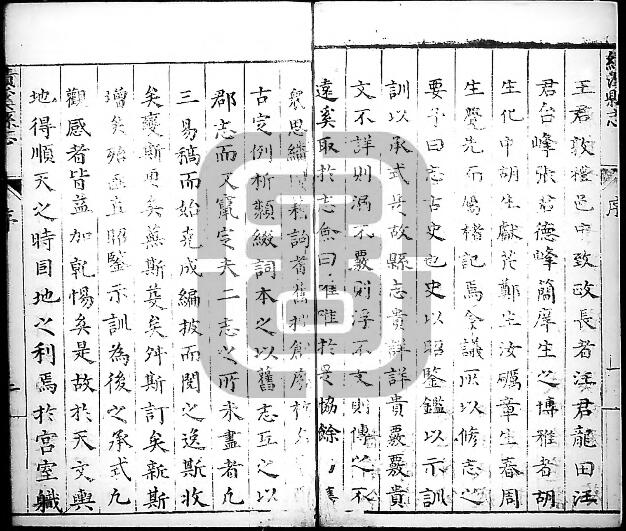 績溪縣志
序
王君敦禮邑中致政長者汪君龍田汪
君台峰張君德峰簡庠生之博雅者胡
生化中胡生獻花鄭生汝礪章生春周
生覺先而屬楮記焉僉議所以修志之
要予曰志古史也史以昭鑒鑑以示訓
訓以承式是故縣志貴詳詳貴覈覈貴
文不詳則漏不覈則浮不文則傳之不
遠奚取於志僉曰唯唯於是協餘
衆思詢耆舊
古定例析類綴詞本之以舊志互之以
郡志而又竄定夫二志之所未盡者凡
三易稿而始克成編披而閱之逸斯收
矣蔓斯更矣蕪斯芟矣舛斯訂矣新斯
增矣殆昭鑒示訓為後之承式凡
觀感者皆益加乾惕矣是故於天文輿
地得順天之時因地之利焉於宮室職
序